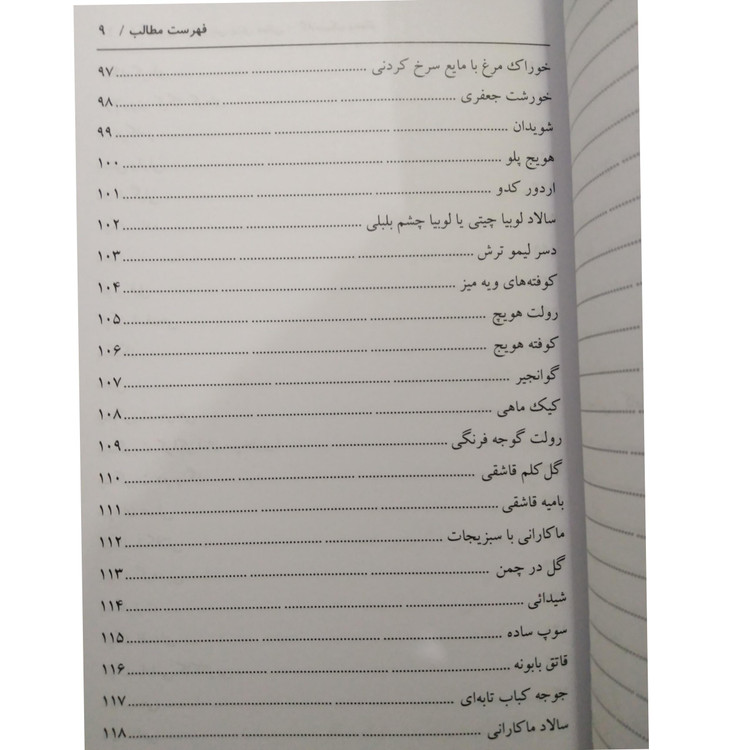 فهرست مطالب / ۹
خوراک مرغ با مایع سرخ کردنی ........ ۹۷
خورشت جعفری ........ ۹۸
شویدان ........ ۹۹
هویج پلو ........ ۱۰۰
اردور کدو ........ ۱۰۱
سالاد لوبیا چیتی یا لوبیا چشم بلبلی ........ ۱۰۲
دسر لیمو ترش ........ ۱۰۳
کوفته‌های ویه میز ........ ۱۰۴
رولت هویچ ........ ۱۰۵
کوفته هویج ........ ۱۰۶
گوانجیر ........ ۱۰۷
کیک ماهی ........ ۱۰۸
رولت گوجه فرنگی ........ ۱۰۹
گل‌کلم قاشقی ........ ۱۱۰
بامیه قاشقی ........ ۱۱۱
ماکارانی با سبزیجات ........ ۱۱۲
گل در چمن ........ ۱۱۳
شیدائی ........ ۱۱۴
سوپ ساده ........ ۱۱۵
قاتق بابونه ........ ۱۱۶
جوجه کباب تابه‌ای ........ ۱۱۷
سالاد ماکارانی ........ ۱۱۸